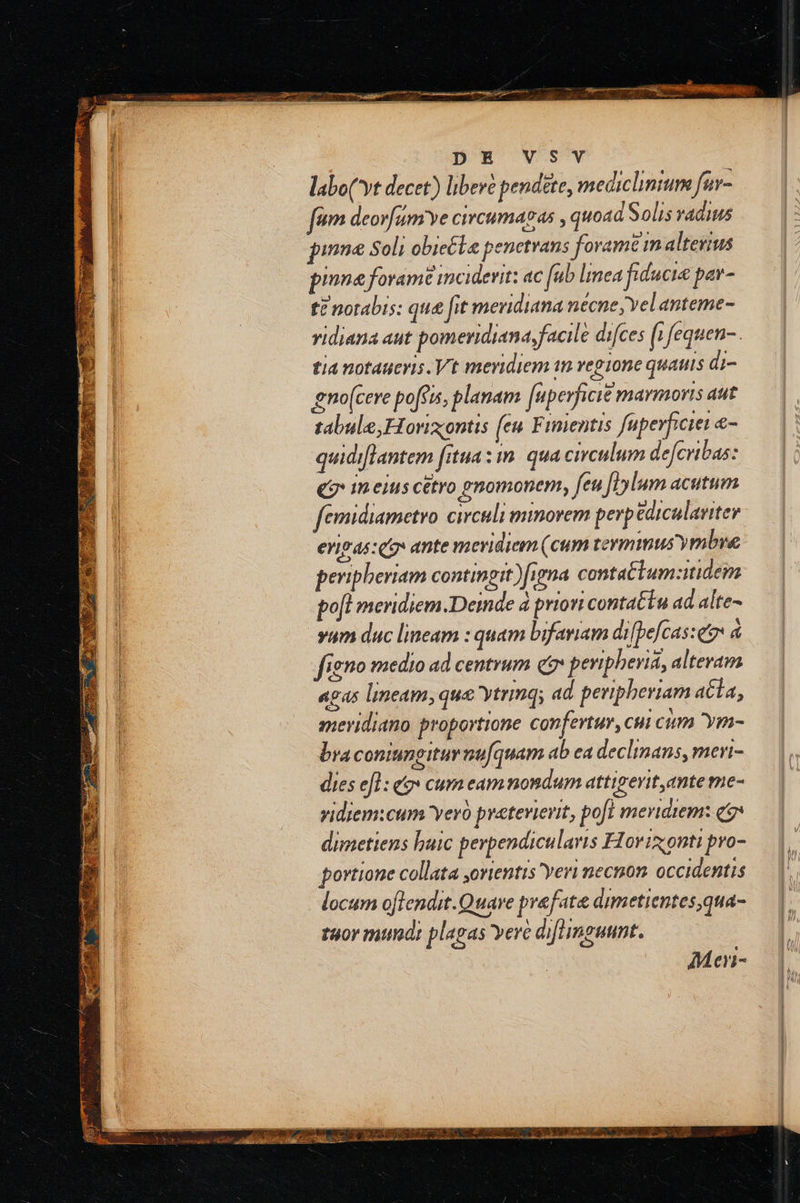 DE VSV
labo(vt decet) liberè pendẽte, mediclinium ſur-
ſum deorſumve circumagas, quoad Solis radius
pinnæ Soli obiectæ penetrans foramẽ in alterius
pinnæ foramẽ inciderit: ac ſub linea fiduciæ par-
tẽ notabis: quæ ſit meridiana nécne, vel anteme-
ridiana aut pomeridiana, facilè diſces ſi ſequen-
tia notaueris. Vt meridiem in regione quauis di-
gnoſcere poſsis, planam ſuperficiẽ marmoris aut
tabulæ, Horizontis ſeu Finientis ſuperficiei æ-
quidiſtantem ſitua: in qua circulum deſcribas:
& in eius cẽtro gnomonem, ſeu ſtylum acutum
ſemidiametro circuli minorem perpẽdiculariter
erigas: & ante meridiem (cum terminus vmbræ
peripheriam contingit) ſigna contactum: itidem
poſt meridiem. Deinde à priori contactu ad alte-
rum duc lineam: quam bifariam diſpeſcas: & à
ſigno medio ad centrum & peripheriã, alteram
agas lineam, quæ vtrinq; ad peripheriam acta,
meridiano proportione confertur, cui cùm vm-
bra coniungitur nuſquam ab ea declinans, meri-
dies eſt: & cum eam nondum attigerit, ante me-
ridiem: cum verò præterierit, poſt meridiem: &
dimetiens huic perpendicularis Horizonti pro-
portione collata, orientis veri necnon occidentis
locum oſtendit. Quare præfatæ dimetientes, qua-
tuor mundi plagas verè diſtinguunt.
Meri-